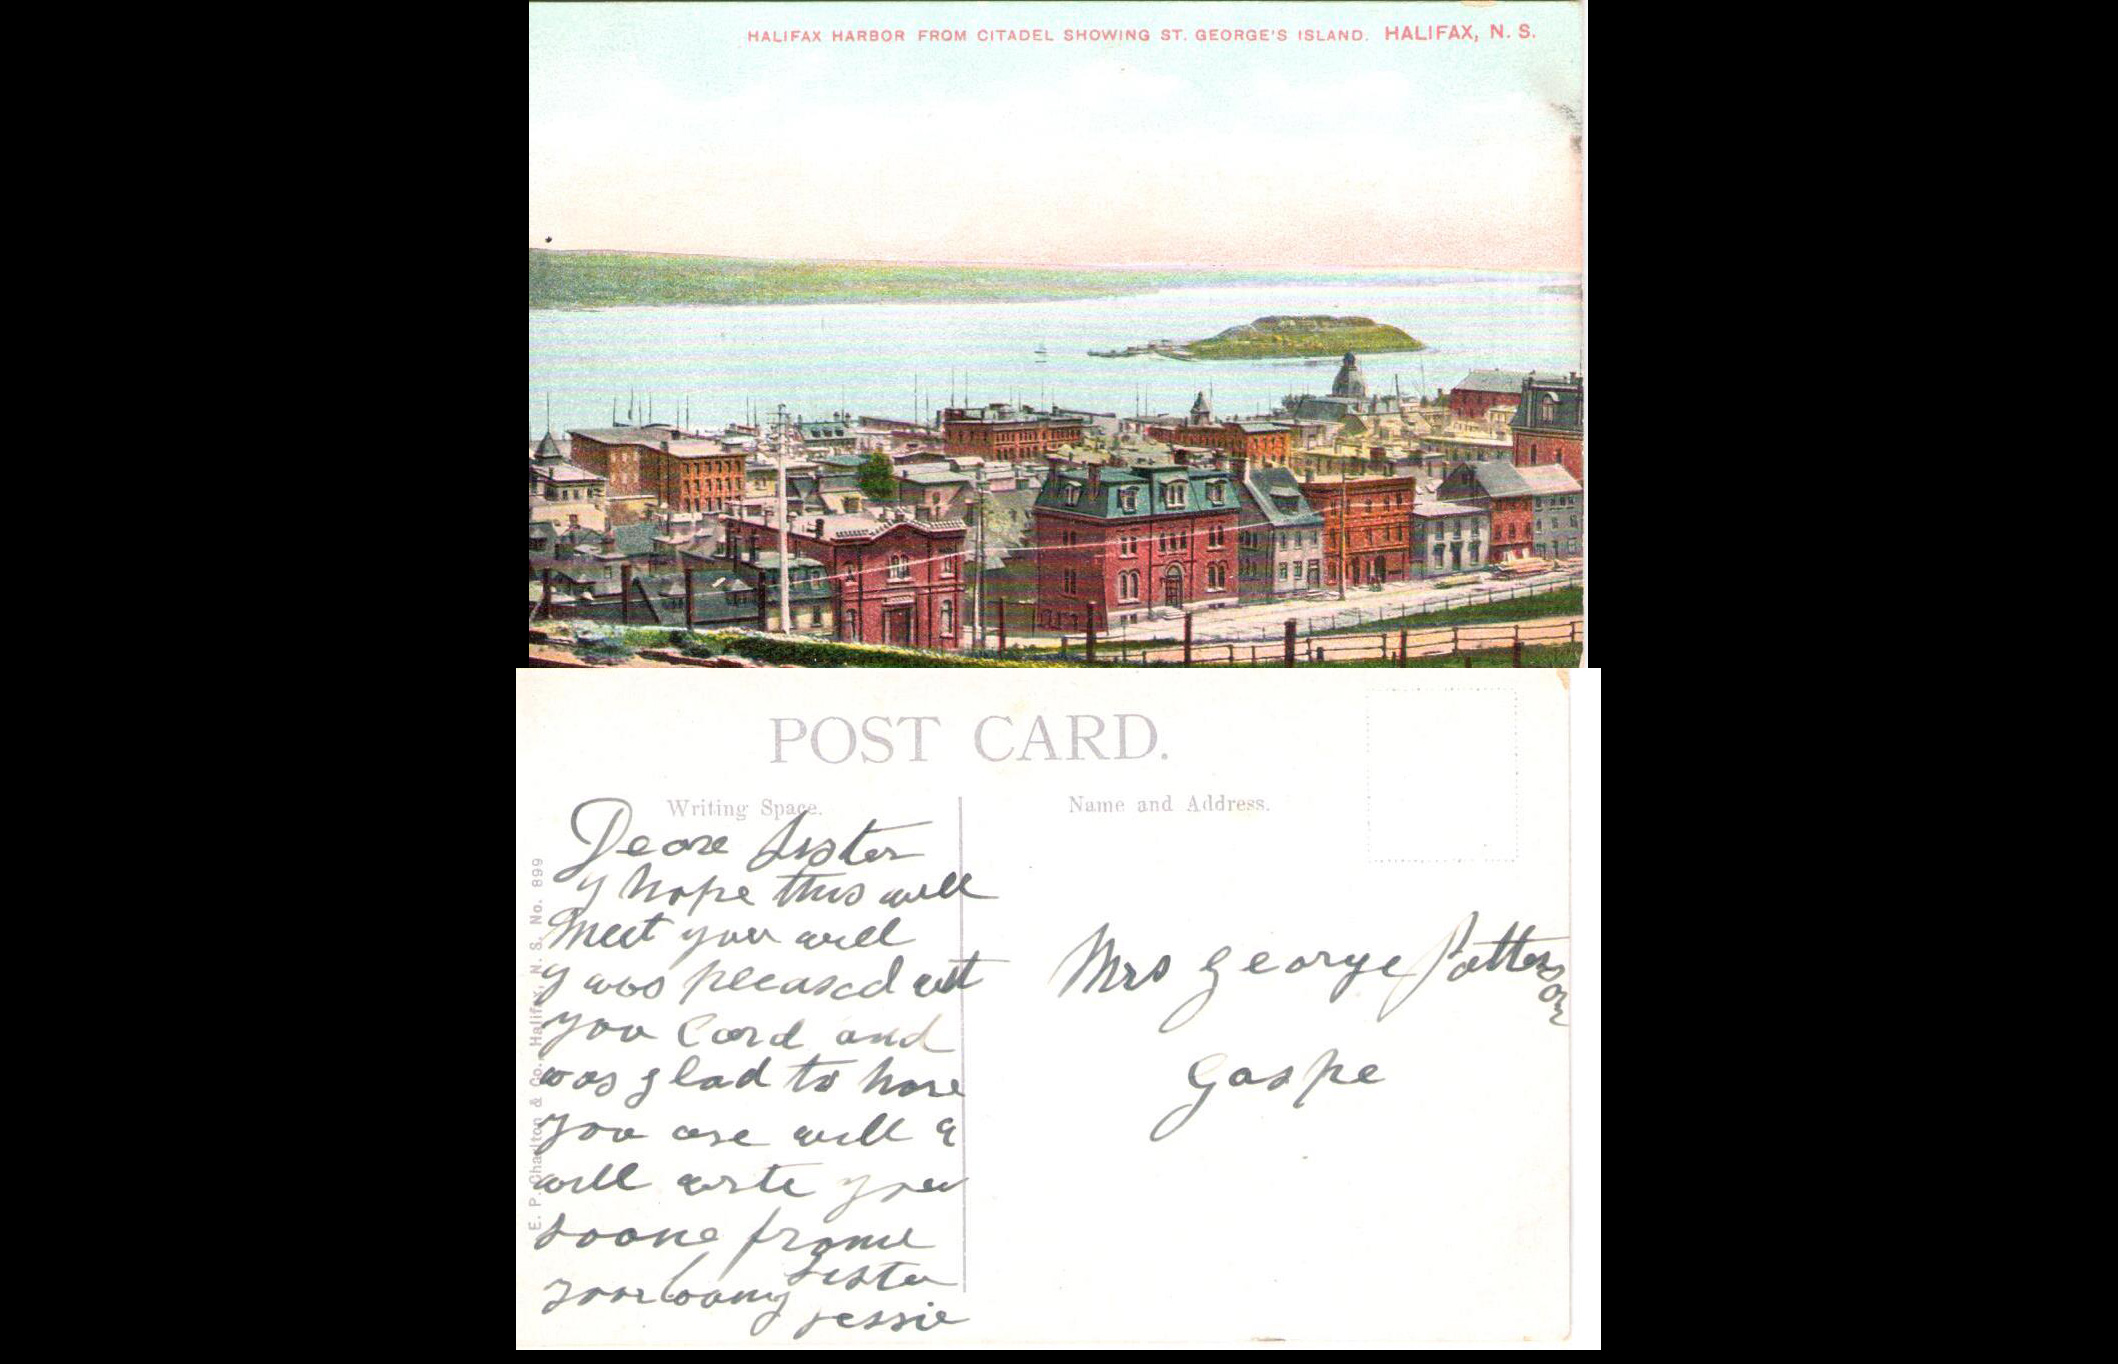 HALIFAX HARBOR FROM CITADEL SHOWING ST. GEORGE'S ISLAND. HALIFAX, N. S.
POST CARD.
Writing Space.
Name and Address.
Deare Sister
y hope this will
Meet you well
y was pleased wit
you Card and
was glad to hare
you are well &
will write you
soone frome
your loving sister
Jessie
Mrs George Patterson
Gaspe
E. P. Charlton & Co., Halifax, N. S. No. 899